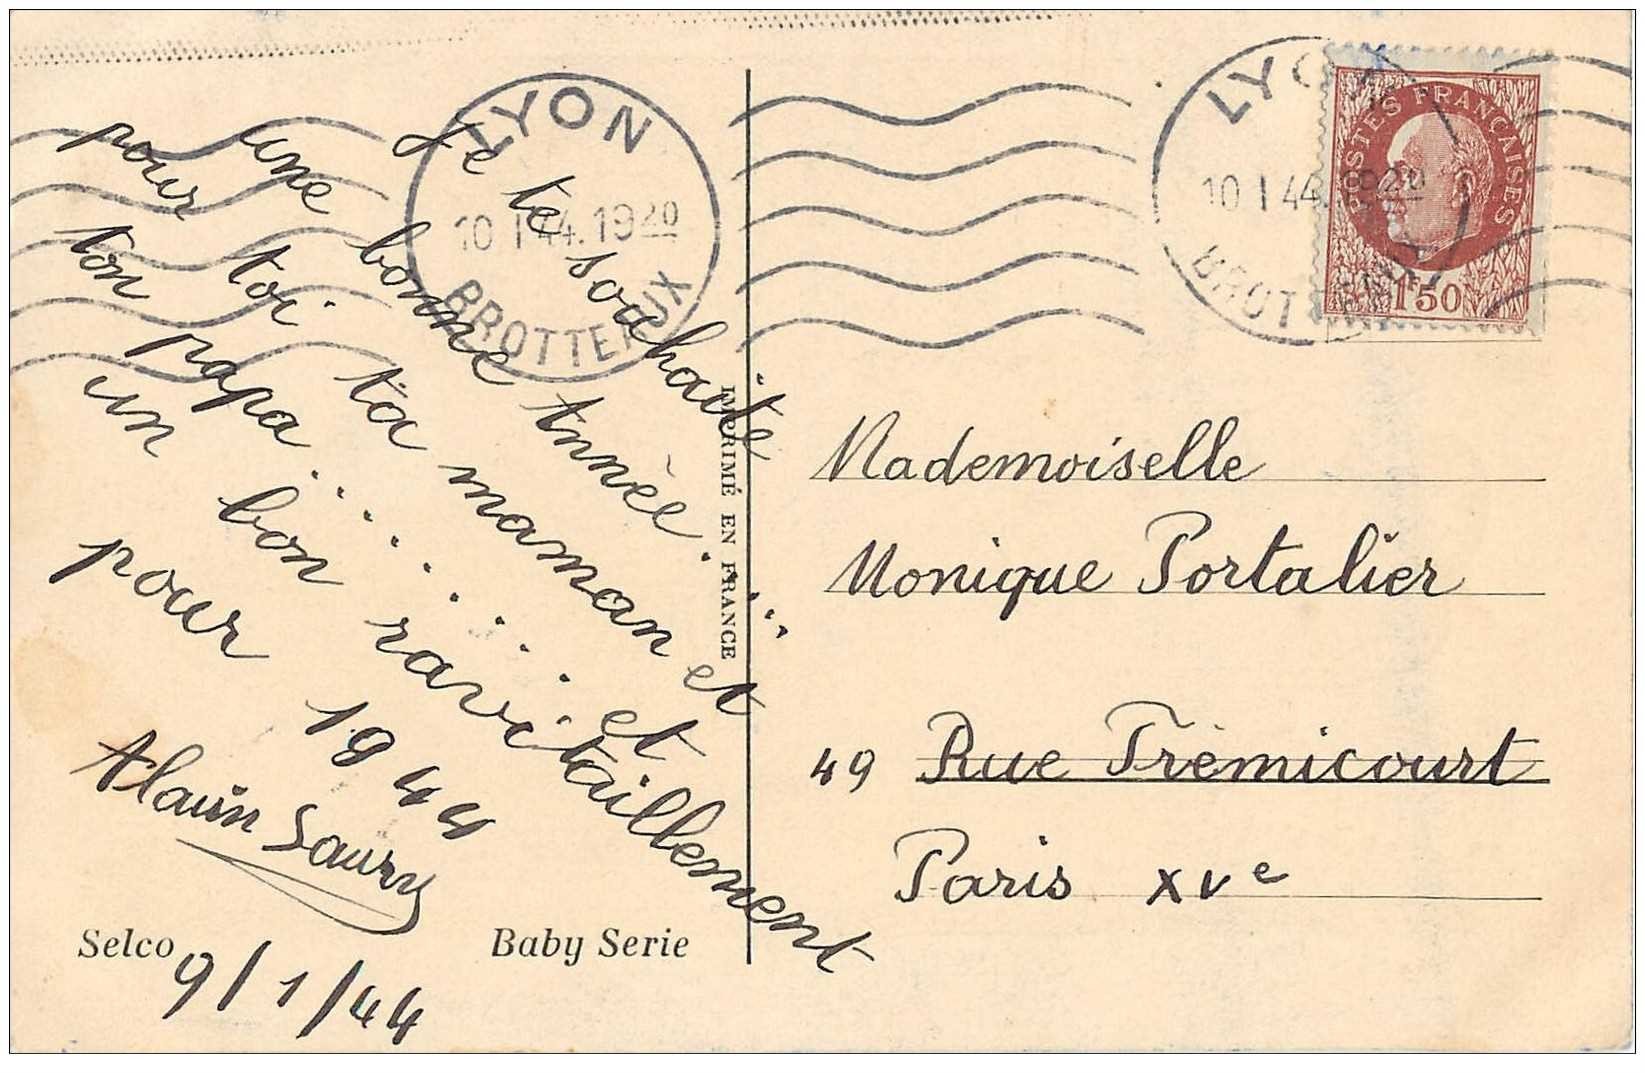 Je te souhaite
une bonne Année.
pour toi ta maman et
ton papa. et
un bon ravitaillement
pour 1944
Alain Saury
9/1/44
Selco
Baby Serie
IMPRIMÉ EN FRANCE
LYON
10 I 44. 19 20
BROTTEAUX
LYON
10 I 44. 1920
BROTTEAUX
POSTES FRANÇAISES
1F50
Mademoiselle
Monique Portalier
49 Rue Frèmicourt
Paris XVe